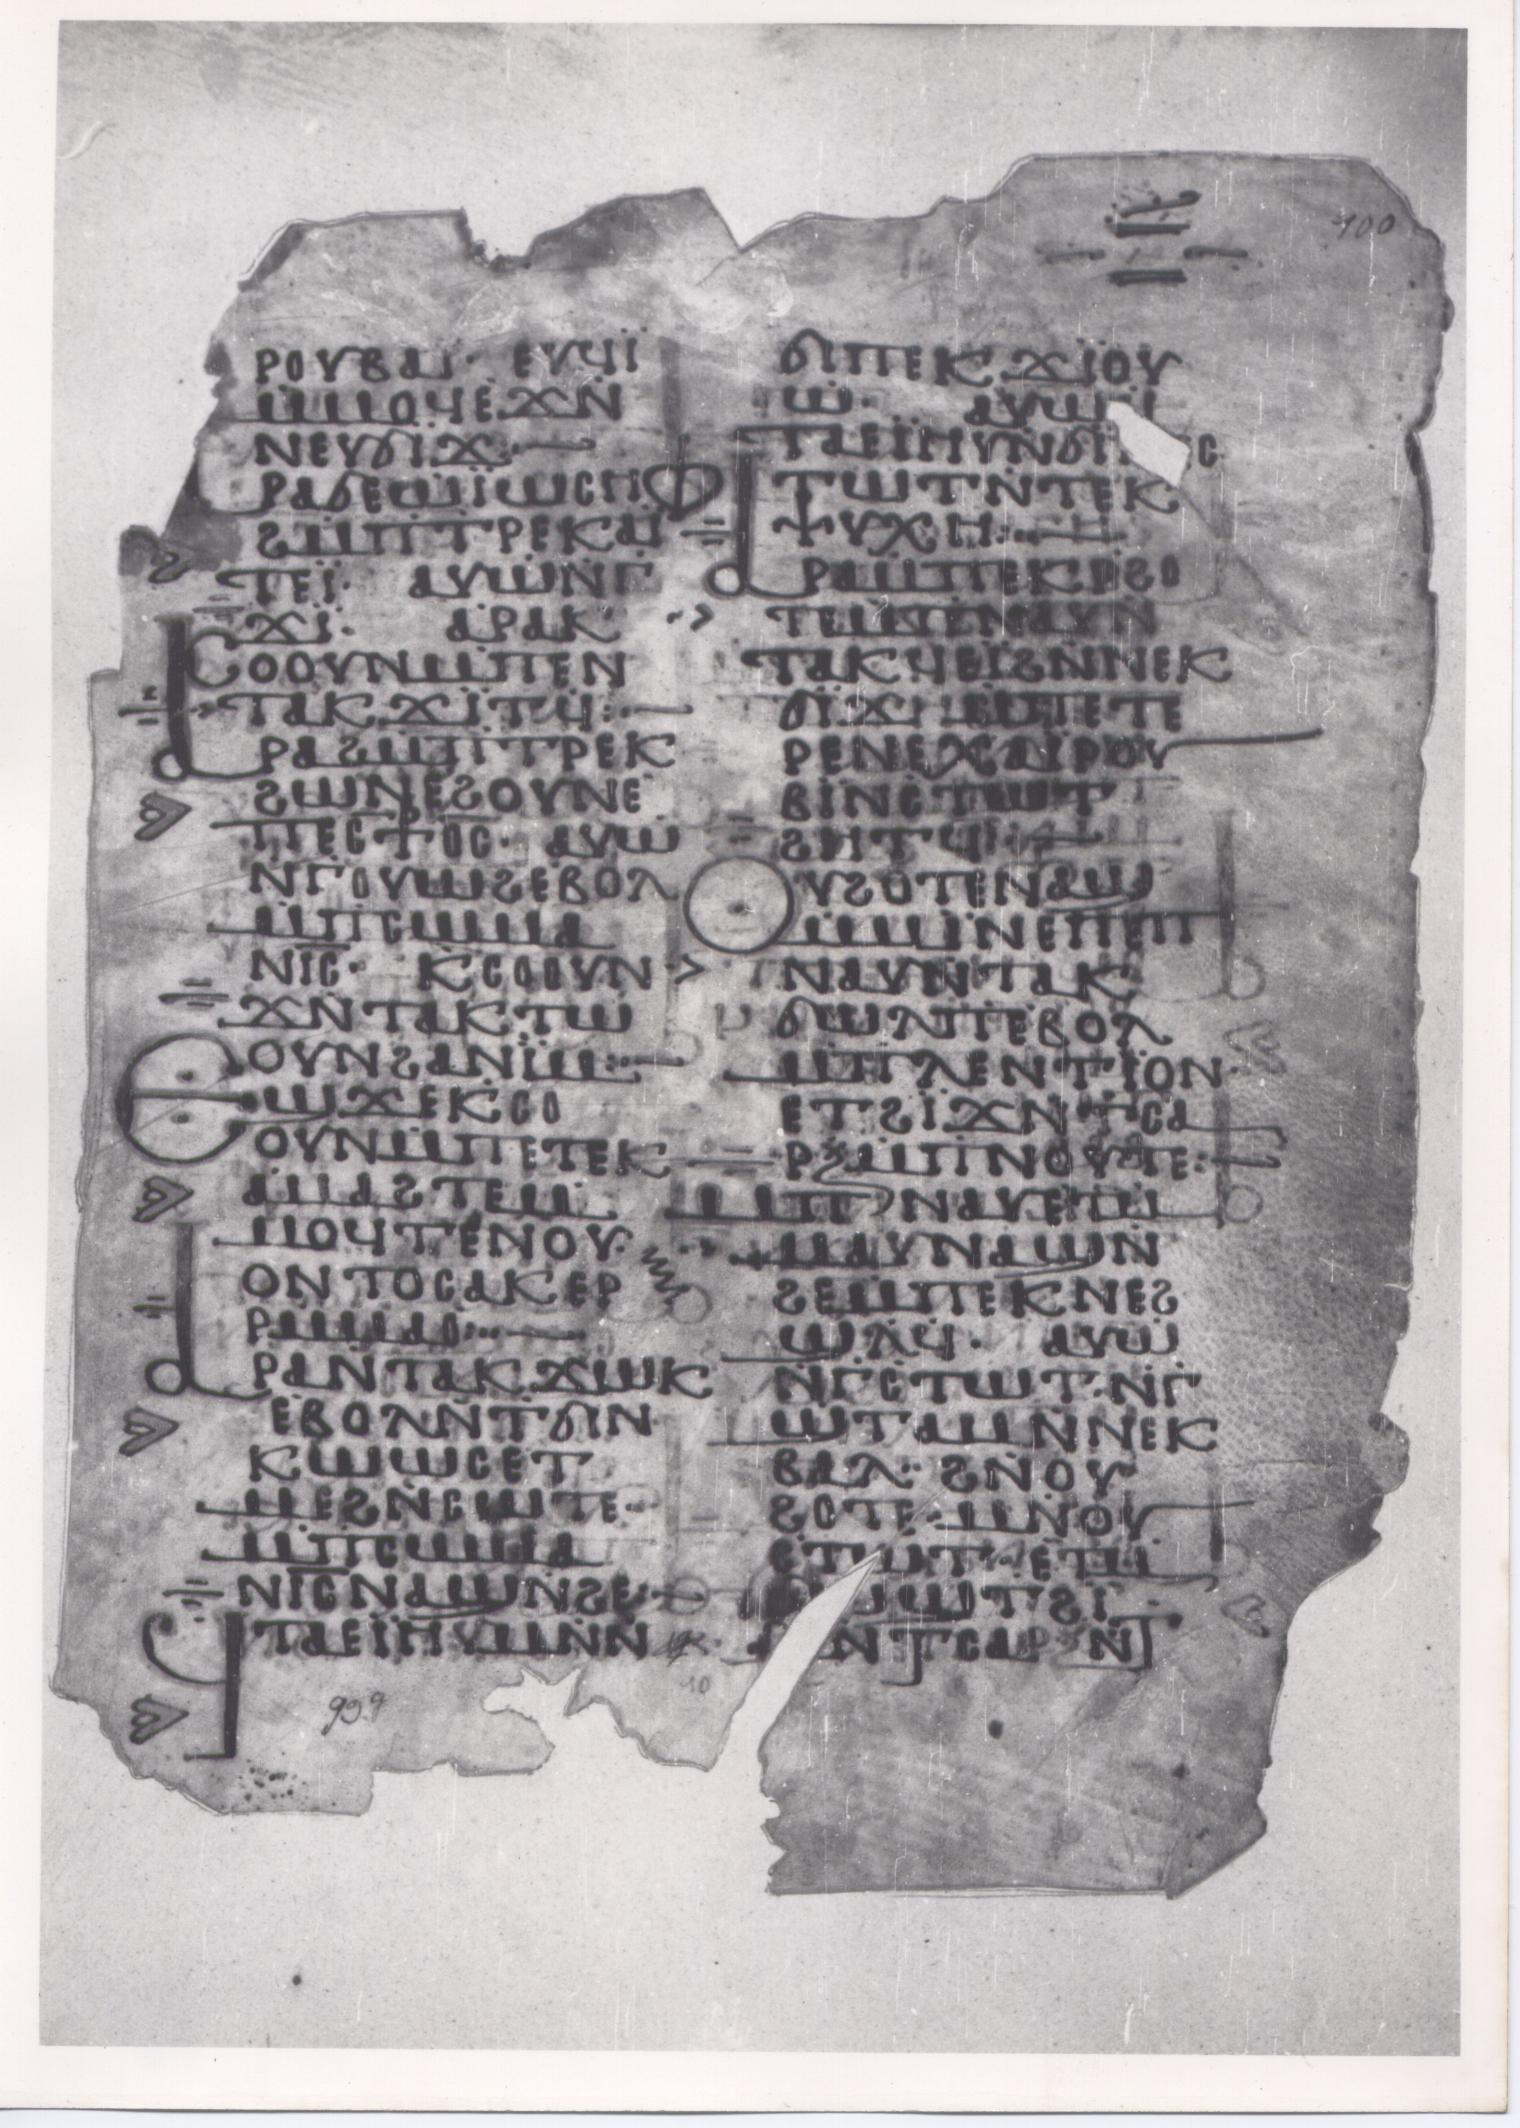 100
ⲣⲟⲩⲃⲁⲓ· ⲉⲩϥⲓ
ⲙⲙⲟϥⲉϫⲛ
ⲛⲉⲩϭⲓϫ·
ⲣⲁϭⲉⲱⲓⲱⲥⲏⲫ
ϩⲙⲡⲧⲣⲉⲕⲁⲓ
ⲧⲉⲓ· ⲁⲩⲱⲛⲅ
ϫⲓ· ⲁⲣⲁⲕ
ⲥⲟⲟⲩⲛⲙⲡⲉⲛ
ⲧⲁⲕϫⲓⲧϥ·
ⲁⲣⲁϩⲙⲡⲧⲣⲉⲕ
ϩⲱⲛⲉϩⲟⲩⲛⲉ
ⲡⲉⲥ⳨ⲟⲥ· ⲁⲩⲱ
ⲉⲃⲟⲗ
ⲙⲡⲥⲱⲙⲁ
ⲛⲓⲥ· ⲕⲥⲟⲟⲩⲛ
ϫⲛⲧⲁⲕⲧⲱ
ⲟⲩⲛϩⲁⲛⲓⲙ·
ⲉϣϫⲉⲕⲥⲟ
ⲟⲩⲛⲙⲡⲉⲧⲉⲕ
ⲁⲙⲁϩⲧⲉⲙ
ⲙⲟϥⲧⲉⲛⲟⲩ·
ⲟⲛⲧⲟⲥⲁⲕⲉⲣ
ⲣⲙⲙⲁⲟ·
ⲁⲣⲁⲛⲧⲁⲕϫⲱⲕ
ⲉⲃⲟⲗⲛⲧϭⲓⲛ
ⲕⲱⲱⲥⲉⲧ
ⲙⲉϩⲛⲥⲱⲧⲉ·
ⲙⲡⲥⲱⲙⲁ
ⲛⲓⲥⲛⲁϣⲛϩⲉ·
ϥⲧⲁⲉⲓⲏⲩ
ϭⲓⲡⲉⲕϫⲓⲟⲩ
ⲱ· ⲁⲩⲱ
ⲧⲁⲉⲓⲏⲩⲛϭⲓ
ⲧⲱⲧⲛⲧⲉⲕ
ⲯⲩⲭⲏ·
ⲁⲣⲁⲙⲡⲉⲕⲣϩⲟ
ⲧⲉⲙⲡⲛⲁⲩⲛ
ⲧⲁⲕϥⲉⲓϩⲛⲛⲉⲕ
ϭⲓϫⲙⲡⲉⲧⲉ
ⲣⲉⲛⲉⲭⲁⲓⲣⲟⲩ
ⲃⲓⲛⲥⲧⲱⲧ
ϩⲏⲧϥ·
ⲟⲩϩⲟⲧⲉⲛⲁϣ
ⲙⲙⲓⲛⲉⲡⲉⲡ
ⲛⲁⲩⲛⲧⲁⲕ
ϭⲱⲗⲡⲉⲃⲟⲗ
ⲙⲡⲗⲉⲛⲧⲓⲟⲛ
ⲉⲧϩⲓϫⲛⲧⲥⲁ
ⲣⲝⲙⲡⲛⲟⲩⲧⲉ·
ⲙⲡⲛⲁⲩⲉⲧⲙ
ⲙⲁⲩⲛⲁϣⲛ
ϩⲉⲙⲡⲉⲕⲛⲉϩ
ⲱⲗϥ· ⲁⲩⲱ
ⲛⲅⲥⲧⲱⲧ·ⲛⲅ
ϣⲧⲁⲙⲛⲛⲉⲕ
ⲃⲁⲗ· ϩⲛⲟⲩ
ϩⲟⲧⲉ·ⲙⲛⲟⲩ
ⲥⲧⲱⲧ·ⲉⲧⲙ
ϭⲱϣⲧϩⲓ
ϫⲛⲧⲥⲁⲣⲝⲛⲧ
10